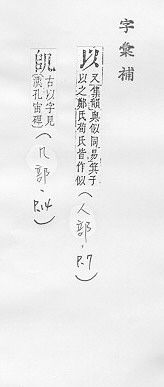 字彙補
以 又集韻與似同易箕子
以之鄭氏荀氏皆作似
(人部,P.7)
古以字見
漢孔宙碑
(几部,P.14)